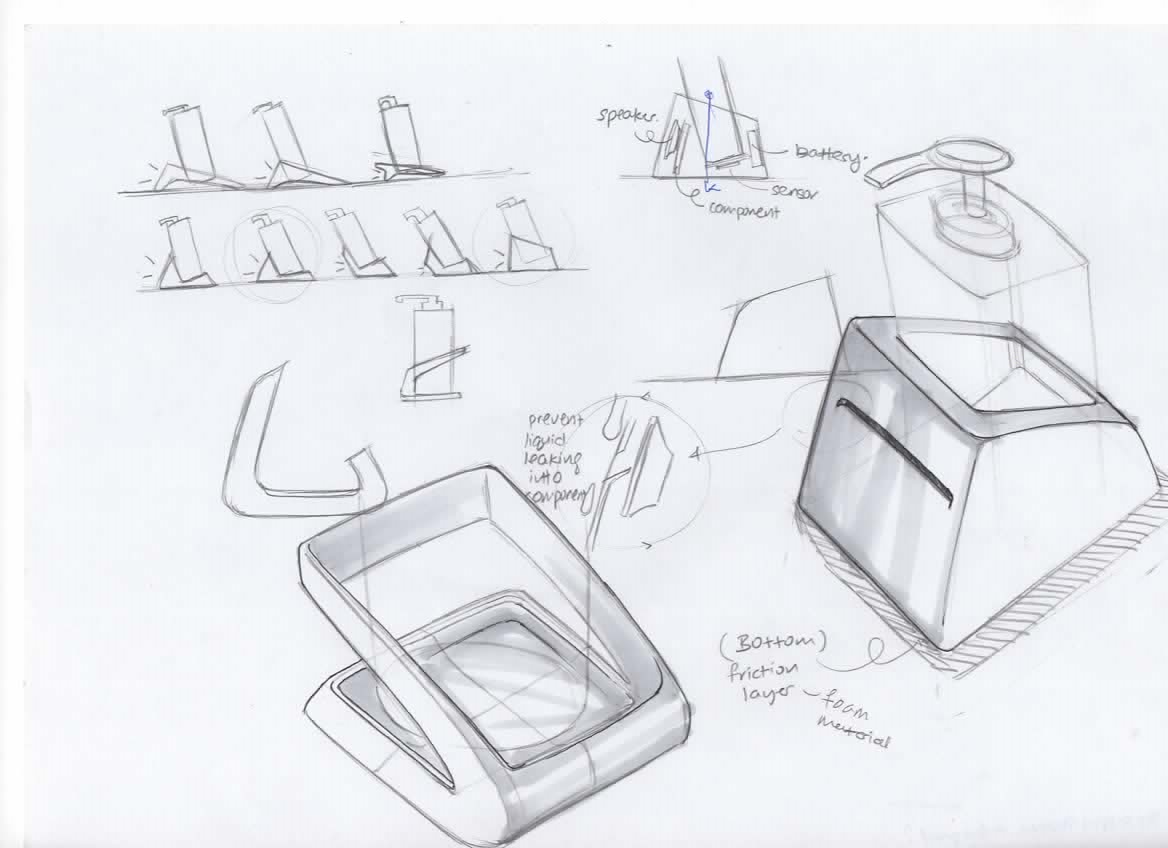 speaker.
battery.
sensor
component
prevent
liquid
leaking
into
component
(Bottom)
friction
layer - foam
material